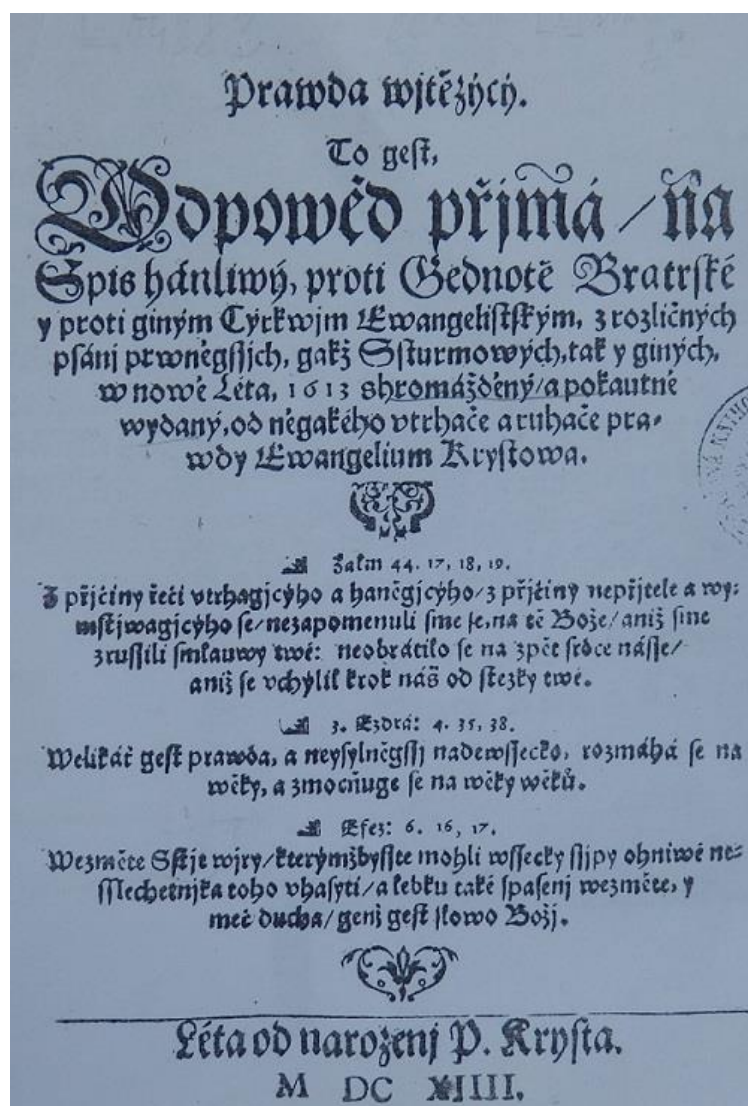 Prawda wjtězýcý.
To gest,
Odpowěd přjmá / na
Spis hánliwý, proti Gednotě Bratrské
y proti giným Cýrkwjm Ewangelistským, z rozličných
psánj prwněgssjch, gakž Ssturmowých, tak y giných,
w nowě Léta, 1613 shromážděný / a pokautně
wydaný, od něgakého vtrhače a ruhače pra-
wdy Ewangelium Krystowa.
Žalm 44. 17, 18, 19.
Z přjčiny řeči vtrhagjcýho a haněgjcýho / z přjčiny nepřjtele a wy-
mstjwagjcýho se / nezapomenuli sme se, na tě Bože / aniž sme
zrussili smlauwy twé: neobrátilo se na zpět srdce násse /
aniž se vchýlil krok náš od stezky twé.
3. Ezdrá: 4. 35, 38.
Welikáť gest prawda, a neysylněgssj nadewssecko, rozmáhá se na
wěky, a zmocňuge se na wěky wěků.
Efez: 6. 16, 17.
Wezměte Sstjt wjry / kterýmžbysste mohli wssecky ssjpy ohniwé ne-
sslechetnjka toho vhasyti / a lebku také spasenj wezměte, y
meč ducha / genž gest slowo Božj.
Léta od narozenj P. Krysta.
M DC XIIII.